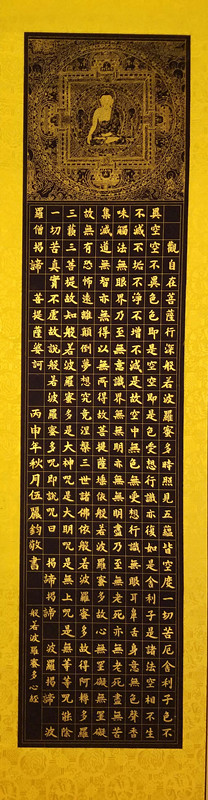 觀自在菩薩行深般若波羅蜜多時照見五蘊皆空度一切苦厄舍利子色不
異空空不異色色即是空空即是色受想行識亦復如是舍利子是諸法空相不生
不滅不垢不淨不增不減是故空中無色無受想行識無眼耳鼻舌身意無色聲香
味觸法無眼界乃至無意識界無無明亦無無明盡乃至無老死亦無老死盡無苦
集滅道無智亦無得以無所得故菩提薩埵依般若波羅蜜多故心無罣礙無罣礙
故無有恐怖遠離顛倒夢想究竟涅槃三世諸佛依般若波羅蜜多故得阿耨多羅
三藐三菩提故知般若波羅蜜多是大神咒是大明咒是無上咒是無等等咒能除
一切苦真實不虛故說般若波羅蜜多咒即說咒曰 揭諦揭諦 波羅揭諦 波
羅僧揭諦 菩提薩婆訶 丙申年秋月伍麗鈞敬書
般若波羅蜜多心經